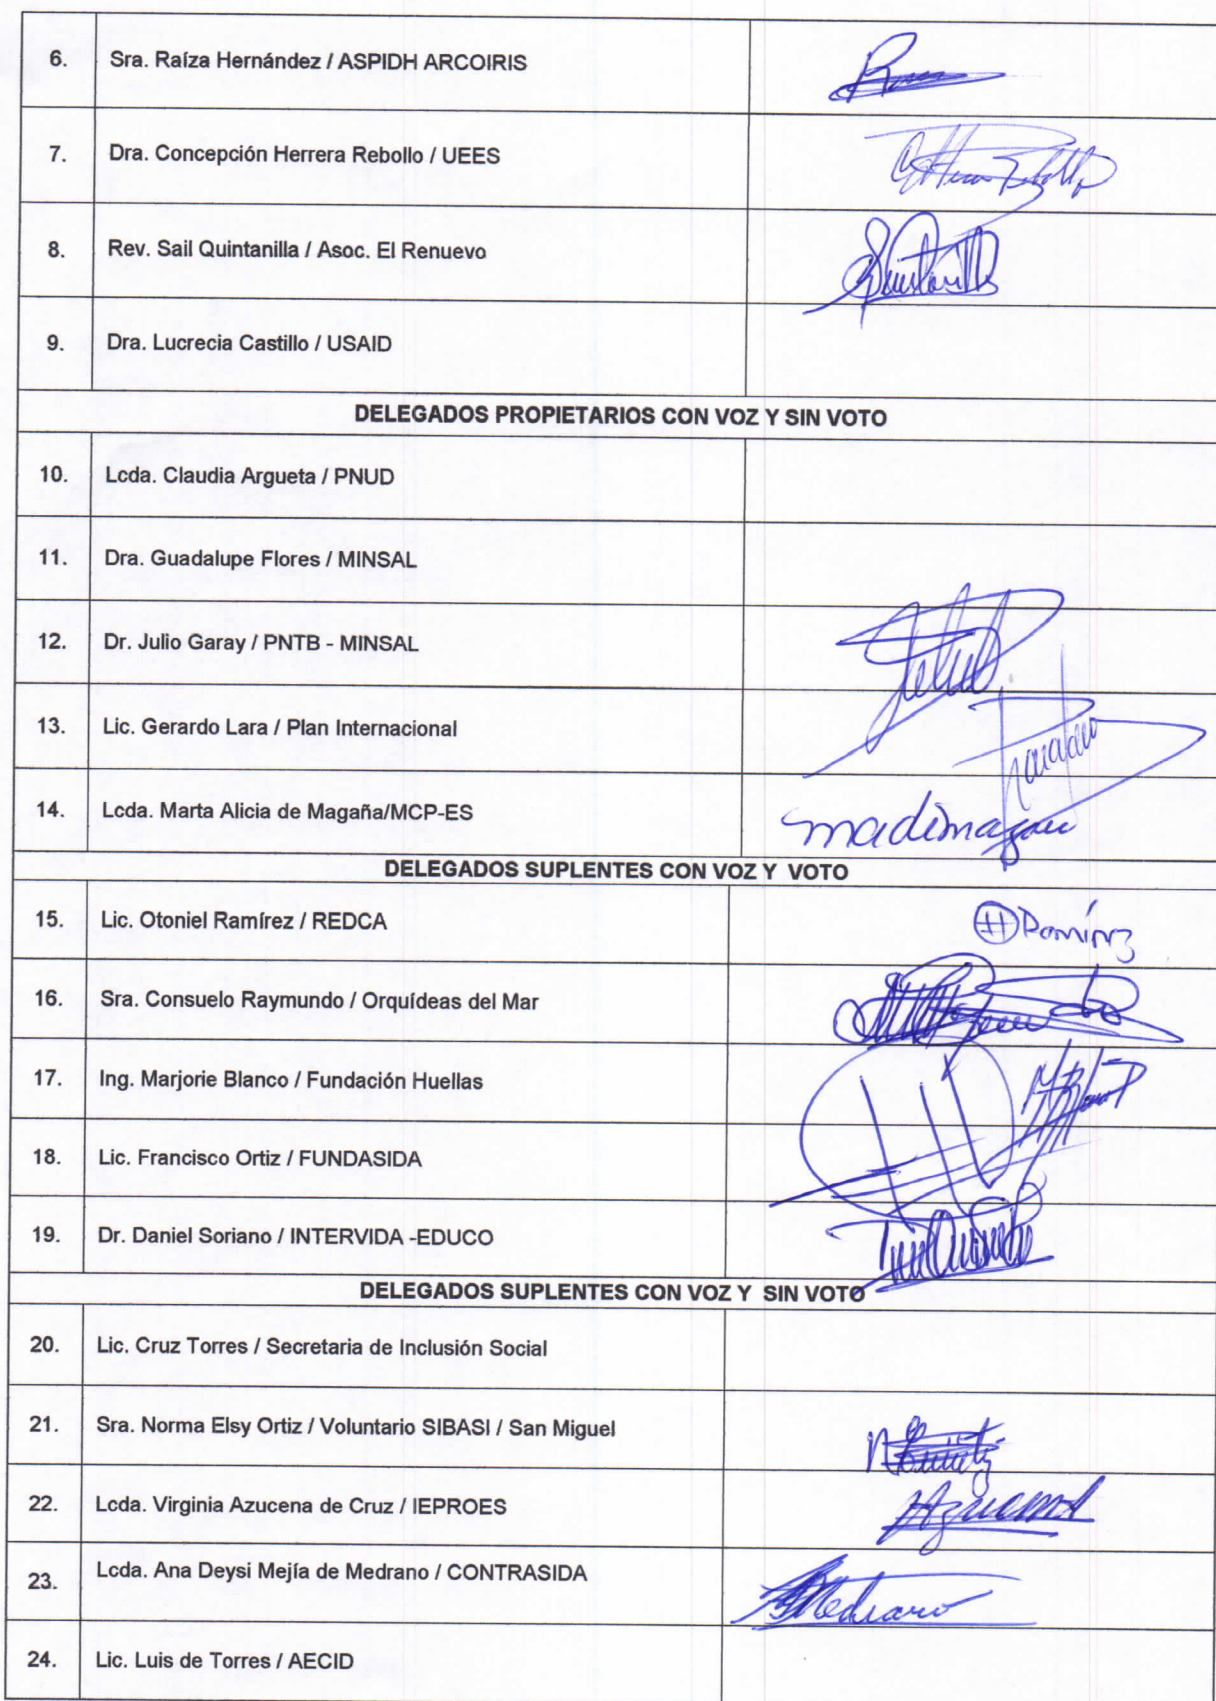 6. Sra. Raíza Hernández / ASPIDH ARCOIRIS
7. Dra. Concepción Herrera Rebollo / UEES
8. Rev. Sail Quintanilla / Asoc. El Renuevo
9. Dra. Lucrecia Castillo / USAID
DELEGADOS PROPIETARIOS CON VOZ Y SIN VOTO
10. Lcda. Claudia Argueta / PNUD
11. Dra. Guadalupe Flores / MINSAL
12. Dr. Julio Garay / PNTB - MINSAL
13. Lic. Gerardo Lara / Plan Internacional
14. Lcda. Marta Alicia de Magaña/MCP-ES
DELEGADOS SUPLENTES CON VOZ Y VOTO
15. Lic. Otoniel Ramírez / REDCA
16. Sra. Consuelo Raymundo / Orquídeas del Mar
17. Ing. Marjorie Blanco / Fundación Huellas
18. Lic. Francisco Ortiz / FUNDASIDA
19. Dr. Daniel Soriano / INTERVIDA -EDUCO
DELEGADOS SUPLENTES CON VOZ Y SIN VOTO
20. Lic. Cruz Torres / Secretaria de Inclusión Social
21. Sra. Norma Elsy Ortiz / Voluntario SIBASI / San Miguel
22. Lcda. Virginia Azucena de Cruz / IEPROES
23. Lcda. Ana Deysi Mejía de Medrano / CONTRASIDA
24. Lic. Luis de Torres / AECID